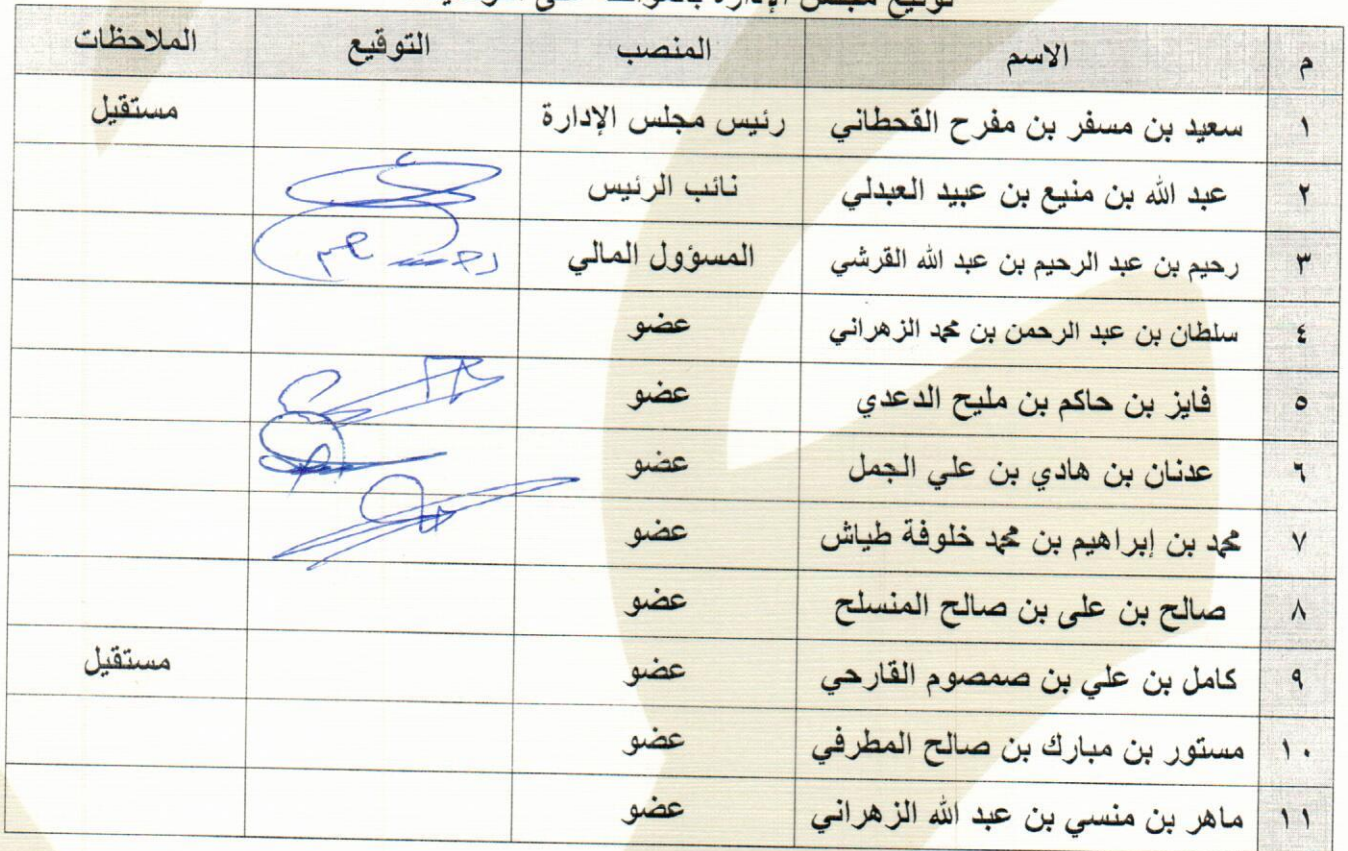 توقيع مجلس الإدارة بالموافقة على
م الاسم المنصب التوقيع الملاحظات
١ سعيد بن مسفر بن مفرح القحطاني رئيس مجلس الإدارة مستقيل
٢ عبد الله بن منيع بن عبيد العبدلي نائب الرئيس
٣ رحيم بن عبد الرحيم بن عبد الله القرشي المسؤول المالي
٤ سلطان بن عبد الرحمن بن محمد الزهراني عضو
٥ فايز بن حاكم بن مليح الدعدي عضو
٦ عدنان بن هادي بن علي الجمل عضو
٧ محمد بن إبراهيم بن محمد خلوفة طياش عضو
٨ صالح بن على بن صالح المنسلح عضو
٩ كامل بن علي بن صمصوم القارحي عضو مستقيل
١٠ مستور بن مبارك بن صالح المطرفي عضو
١١ ماهر بن منسي بن عبد الله الزهراني عضو